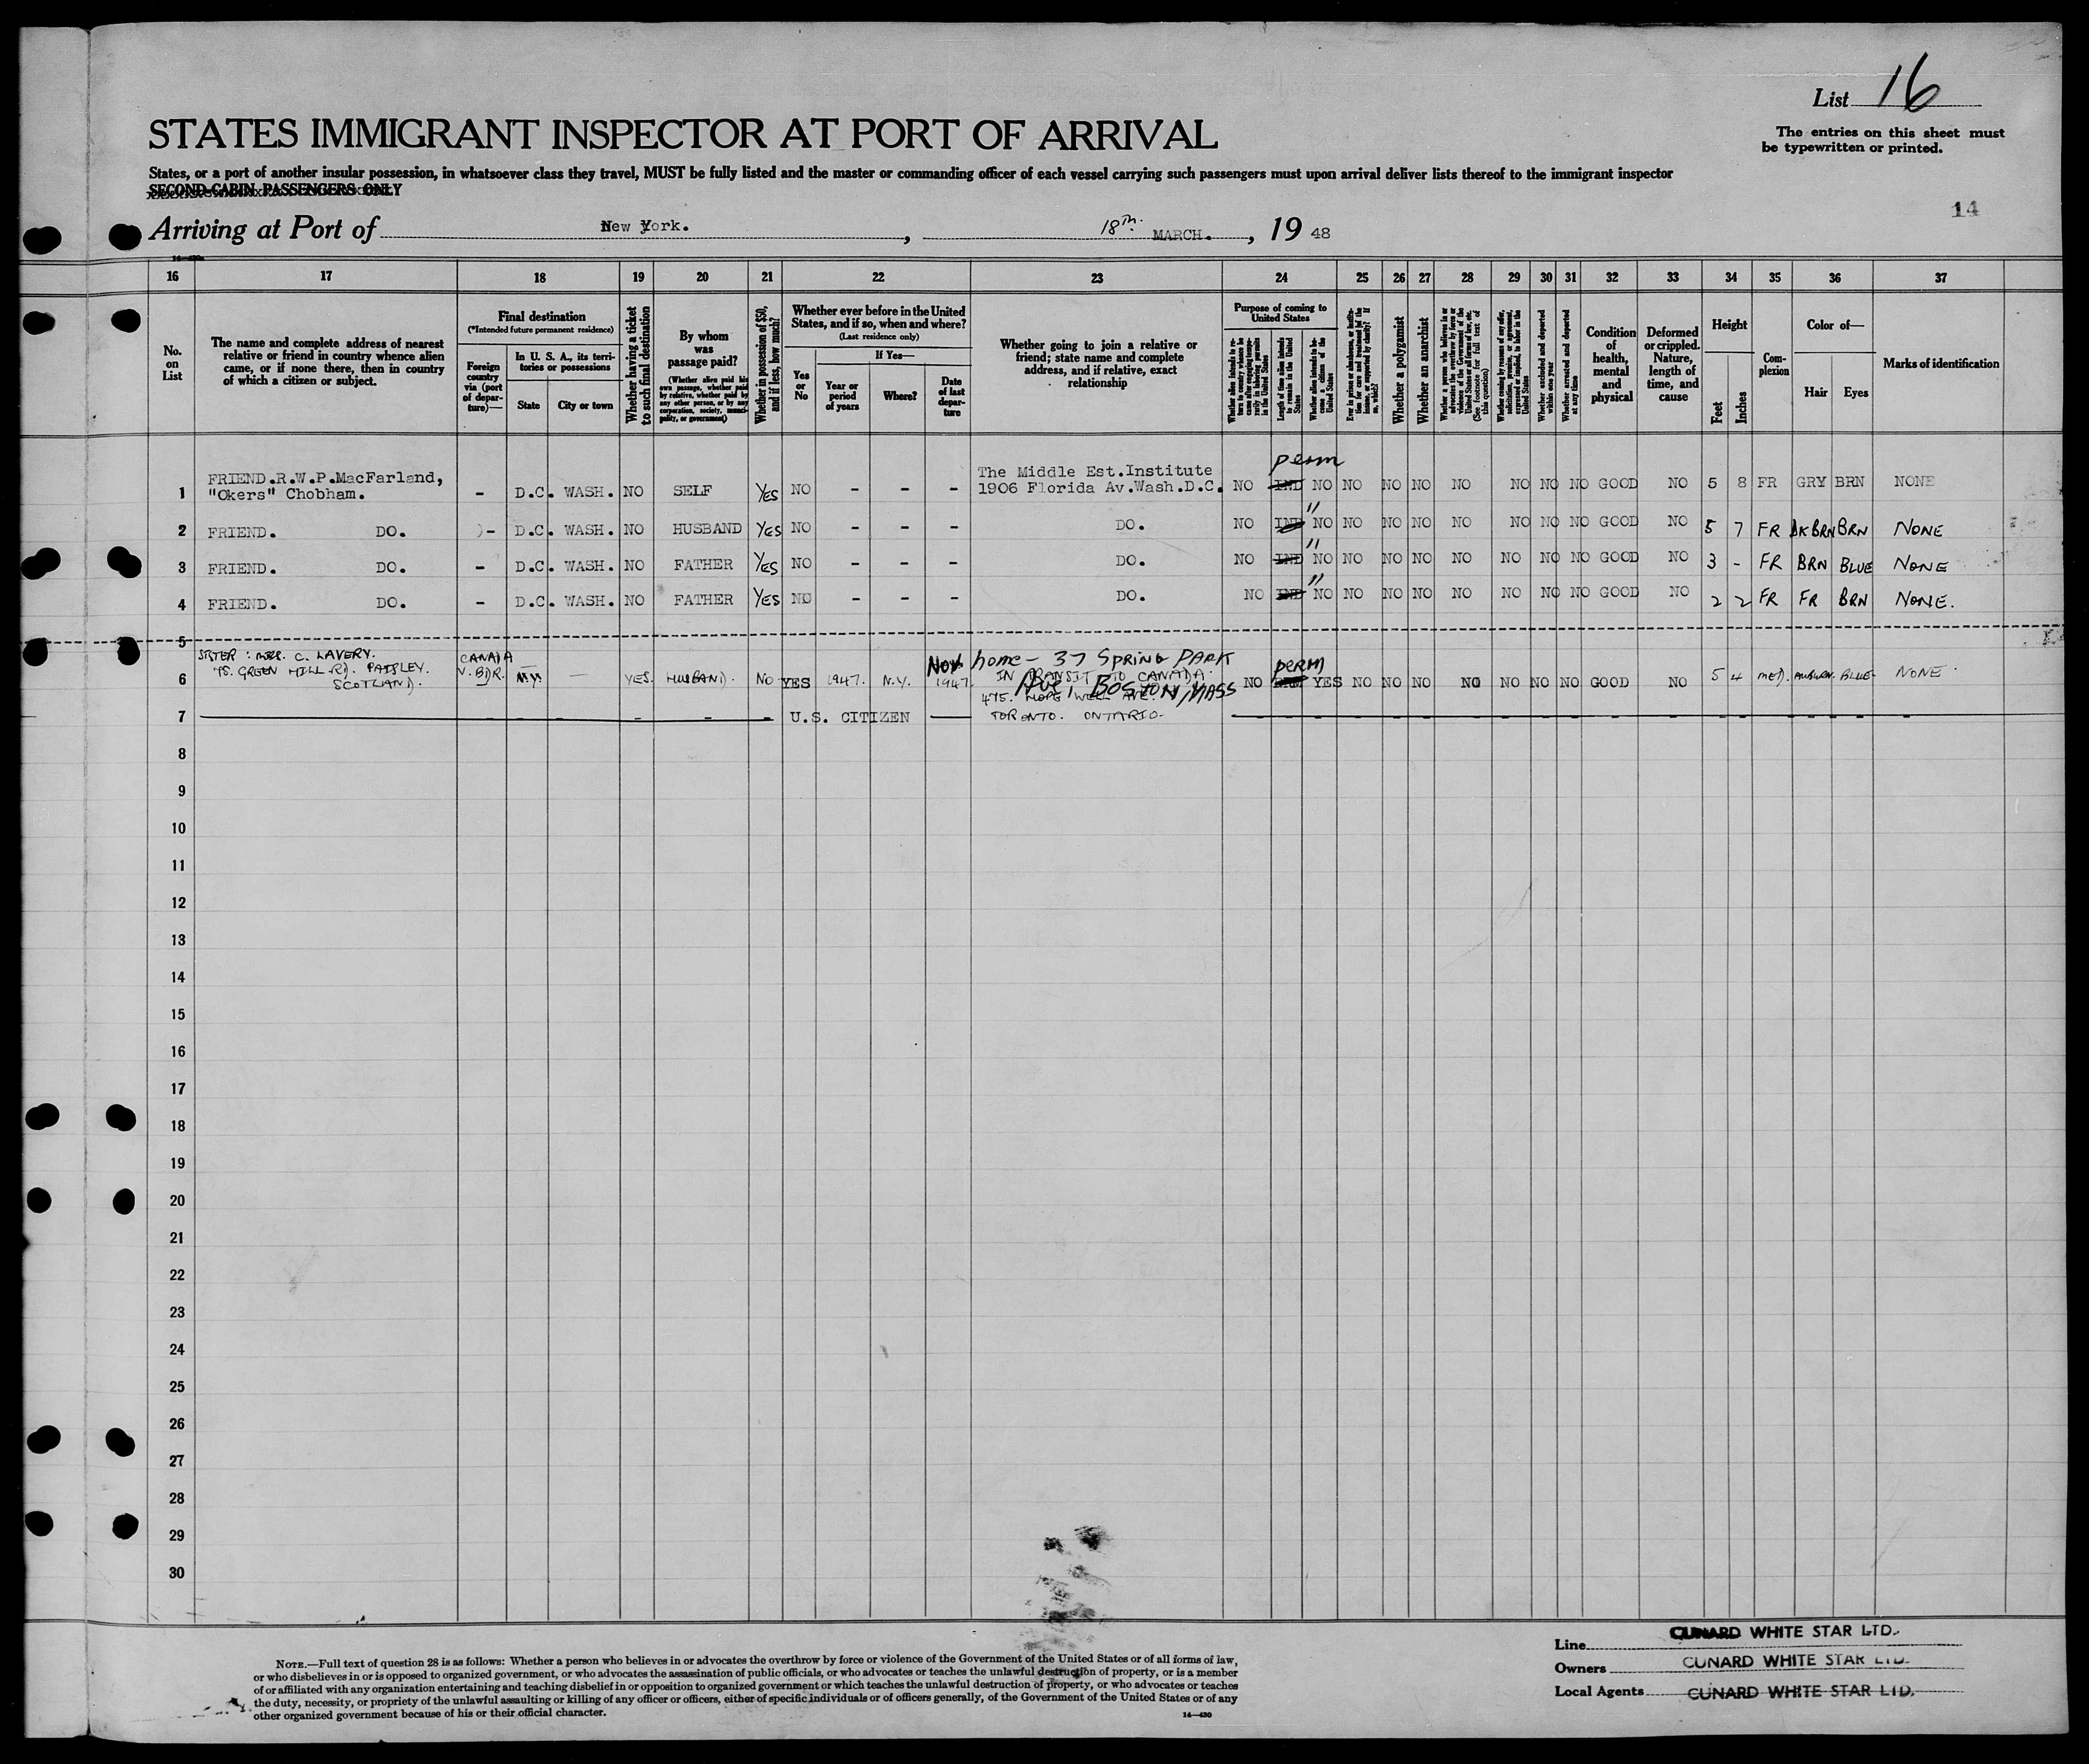 List 16
STATES IMMIGRANT INSPECTOR AT PORT OF ARRIVAL
The entries on this sheet must
be typewritten or printed.
States, or a port of another insular possession, in whatsoever class they travel, MUST be fully listed and the master or commanding officer of each vessel carrying such passengers must upon arrival deliver lists thereof to the immigrant inspector
SECOND-CABIN PASSENGERS ONLY
14
Arriving at Port of New York. , 18th. MARCH. , 19 48
16 17 18 19 20 21 22 23 24 25 26 27 28 29 30 31 32 33 34 35 36 37
No. on List
The name and complete address of nearest relative or friend in country whence alien came, or if none there, then in country of which a citizen or subject.
Final destination
(*Intended future permanent residence)
Foreign country via (port of departure)—
In U. S. A., its territories or possessions
State
City or town
Whether having a ticket to such final destination
By whom was passage paid?
(Whether alien paid his own passage, whether paid by relative, whether paid by any other person, or by any corporation, society, municipality, or government)
Whether in possession of $50, and if less, how much?
Whether ever before in the United States, and if so, when and where?
(Last residence only)
Yes or No
If Yes—
Year or period of years
Where?
Date of last departure
Whether going to join a relative or friend; state name and complete address, and if relative, exact relationship
Purpose of coming to United States
Whether alien intends to return to country whence he came after engaging temporarily in laboring pursuits in the United States
Length of time alien intends to remain in the United States
Whether alien intends to become a citizen of the United States
Whether a polygamist
Whether an anarchist
Whether excluded and deported within one year
Whether arrested and deported at any time
Condition of health, mental and physical
Deformed or crippled. Nature, length of time, and cause
Height
Feet
Inches
Complexion
Color of—
Hair
Eyes
Marks of identification
1 FRIEND.R.W.P.MacFarland, "Okers" Chobham. - D.C. WASH. NO SELF YES NO - - - The Middle Est.Institute 1906 Florida Av.Wash.D.C. NO IND perm NO NO NO NO NO NO NO NO GOOD NO 5 8 FR GRY BRN NONE
2 FRIEND. DO. - D.C. WASH. NO HUSBAND YES NO - - - DO. NO IND " NO NO NO NO NO NO NO NO GOOD NO 5 7 FR DKBRN BRN NONE
3 FRIEND. DO. - D.C. WASH. NO FATHER YES NO - - - DO. NO IND " NO NO NO NO NO NO NO NO GOOD NO 3 - FR BRN BLUE NONE
4 FRIEND. DO. - D.C. WASH. NO FATHER YES NO - - - DO. NO IND " NO NO NO NO NO NO NO NO GOOD NO 2 2 FR FR BRN NONE.
5
6 SISTER: MRS. C. LAVERY. GREEN HILL RD. PAISLEY. SCOTLAND. CANADA N.Y. — YES. HUSBAND. NO YES 1947. N.Y. Nov 1947 home - 37 SPRING PARK Ave, BOSTON, MASS IN TRANSIT TO CANADA 475. HOPEWELL AVE. TORONTO. ONTARIO. NO perm YES NO NO NO NO NO NO NO GOOD NO 5 4 MED. AUBURN. BLUE NONE
7 U.S. CITIZEN
8
9
10
11
12
13
14
15
16
17
18
19
20
21
22
23
24
25
26
27
28
29
30
NOTE.—Full text of question 28 is as follows: Whether a person who believes in or advocates the overthrow by force or violence of the Government of the United States or of all forms of law,
or who disbelieves in or is opposed to organized government, or who advocates the assassination of public officials, or who advocates or teaches the unlawful destruction of property, or is a member
of or affiliated with any organization entertaining and teaching disbelief in or opposition to organized government or which teaches the unlawful destruction of property, or who advocates or teaches
the duty, necessity, or propriety of the unlawful assaulting or killing of any officer or officers, either of specific individuals or of officers generally, of the Government of the United States or of any
other organized government because of his or their official character.
14—430
Line CUNARD WHITE STAR LTD.
Owners CUNARD WHITE STAR LTD.
Local Agents CUNARD WHITE STAR LTD.